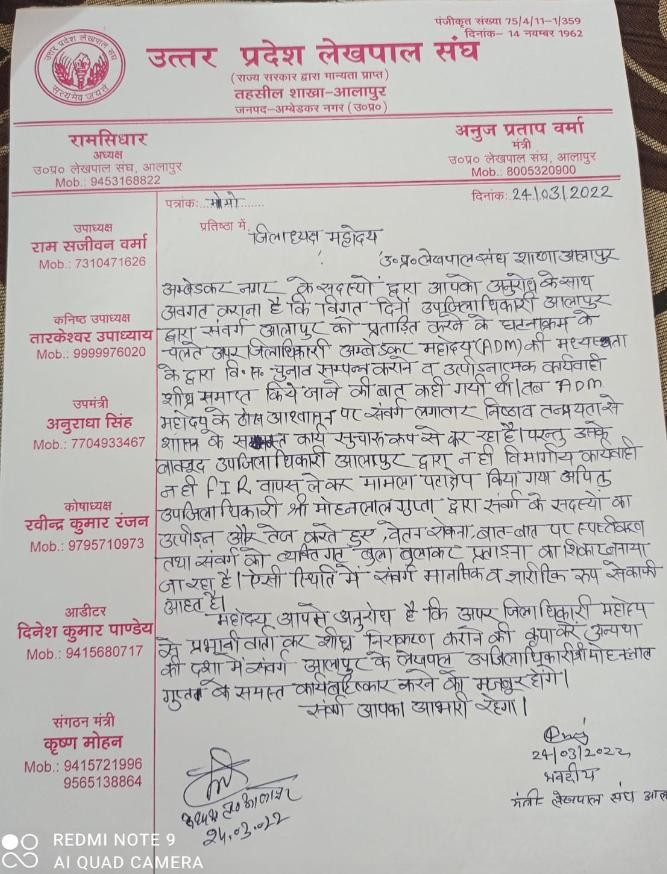 पंजीकृत संख्या 75/4/11-1/359
दिनांक- 14 नवम्बर 1962
उत्तर प्रदेश लेखपाल संघ
(राज्य सरकार द्वारा मान्यता प्राप्त)
तहसील शाखा-आलापुर
जनपद-अम्बेडकर नगर (उ०प्र०)
उत्तर प्रदेश लेखपाल संघ
सत्यमेव जयते
रामसिधार
अध्यक्ष
उ०प्र० लेखपाल संघ, आलापुर
Mob.: 9453168822
अनुज प्रताप वर्मा
मंत्री
उ०प्र० लेखपाल संघ, आलापुर
Mob.: 8005320900
उपाध्यक्ष
राम सजीवन वर्मा
Mob.: 7310471626
कनिष्ठ उपाध्यक्ष
तारकेश्वर उपाध्याय
Mob.: 9999976020
उपमंत्री
अनुराधा सिंह
Mob.: 7704933467
कोषाध्यक्ष
रवीन्द्र कुमार रंजन
Mob.: 9795710973
आडीटर
दिनेश कुमार पाण्डेय
Mob.: 9415680717
संगठन मंत्री
कृष्ण मोहन
Mob.: 9415721996
9565138864
पत्रांकः...मेमो.......
दिनांकः 24/03/2022
प्रतिष्ठा में,
जिलाध्यक्ष महोदय
उ०प्र० लेखपाल संघ शाखा आलापुर
अम्बेडकर नगर के सदस्यों द्वारा आपको अनुरोध के साथ
अवगत कराना है कि विगत दिनों उपजिलाधिकारी आलापुर
द्वारा संवर्ग आलापुर को प्रताड़ित करने के घटनाक्रम के
चलते अपर जिलाधिकारी अम्बेडकर महोदय (ADM) की मध्यस्थता
के द्वारा वि०स० चुनाव सम्पन्न कराने व उत्पीडनात्मक कार्यवाही
शीघ्र समाप्त किये जाने की बात कही गयी थी। तब ADM
महोदय के ठोस आश्वासन पर संवर्ग लगातार निष्ठाव तन्मयता से
शासन के समस्त कार्य सुचारू रूप से कर रहा है। परन्तु उसके
बावजूद उपजिलाधिकारी आलापुर द्वारा न ही विभागीय कार्यवाही
न ही FIR वापस लेकर मामला पटाक्षेप किया गया अपितु
उपजिलाधिकारी श्री मोहनलाल गुप्ता द्वारा संवर्ग के सदस्यों का
उत्पीडन और तेज करते हुए, वेतन रोकना, बात-बात पर स्पष्टीकरण
तथा संवर्ग को व्यक्तिगत बुला बुलाकर प्रताडना का शिकार बनाया
जा रहा है। ऐसी स्थिति में संवर्ग मानसिक व शारीरिक रूप से काफी
आहत है।
महोदय आपसे अनुरोध है कि अपर जिलाधिकारी महोदय
से प्रभावी वार्ता कर शीघ्र निराकरण कराने की कृपा करें अन्यथा
की दशा में संवर्ग आलापुर के लेखपाल उपजिलाधिकारी श्री मोहनलाल
गुप्ता के समस्त कार्य बहिष्कार करने को मजबूर होंगे।
संवर्ग आपका आभारी रहेगा।
24/03/2022
भवदीय
मंत्री लेखपाल संघ आला
24.03.022
REDMI NOTE 9
AI QUAD CAMERA